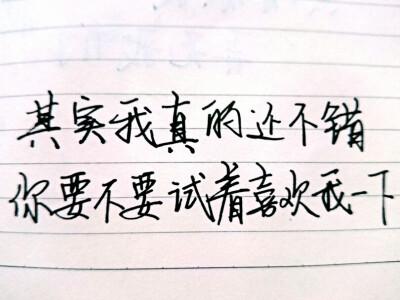 其实我真的还不错
你要不要试着喜欢我一下